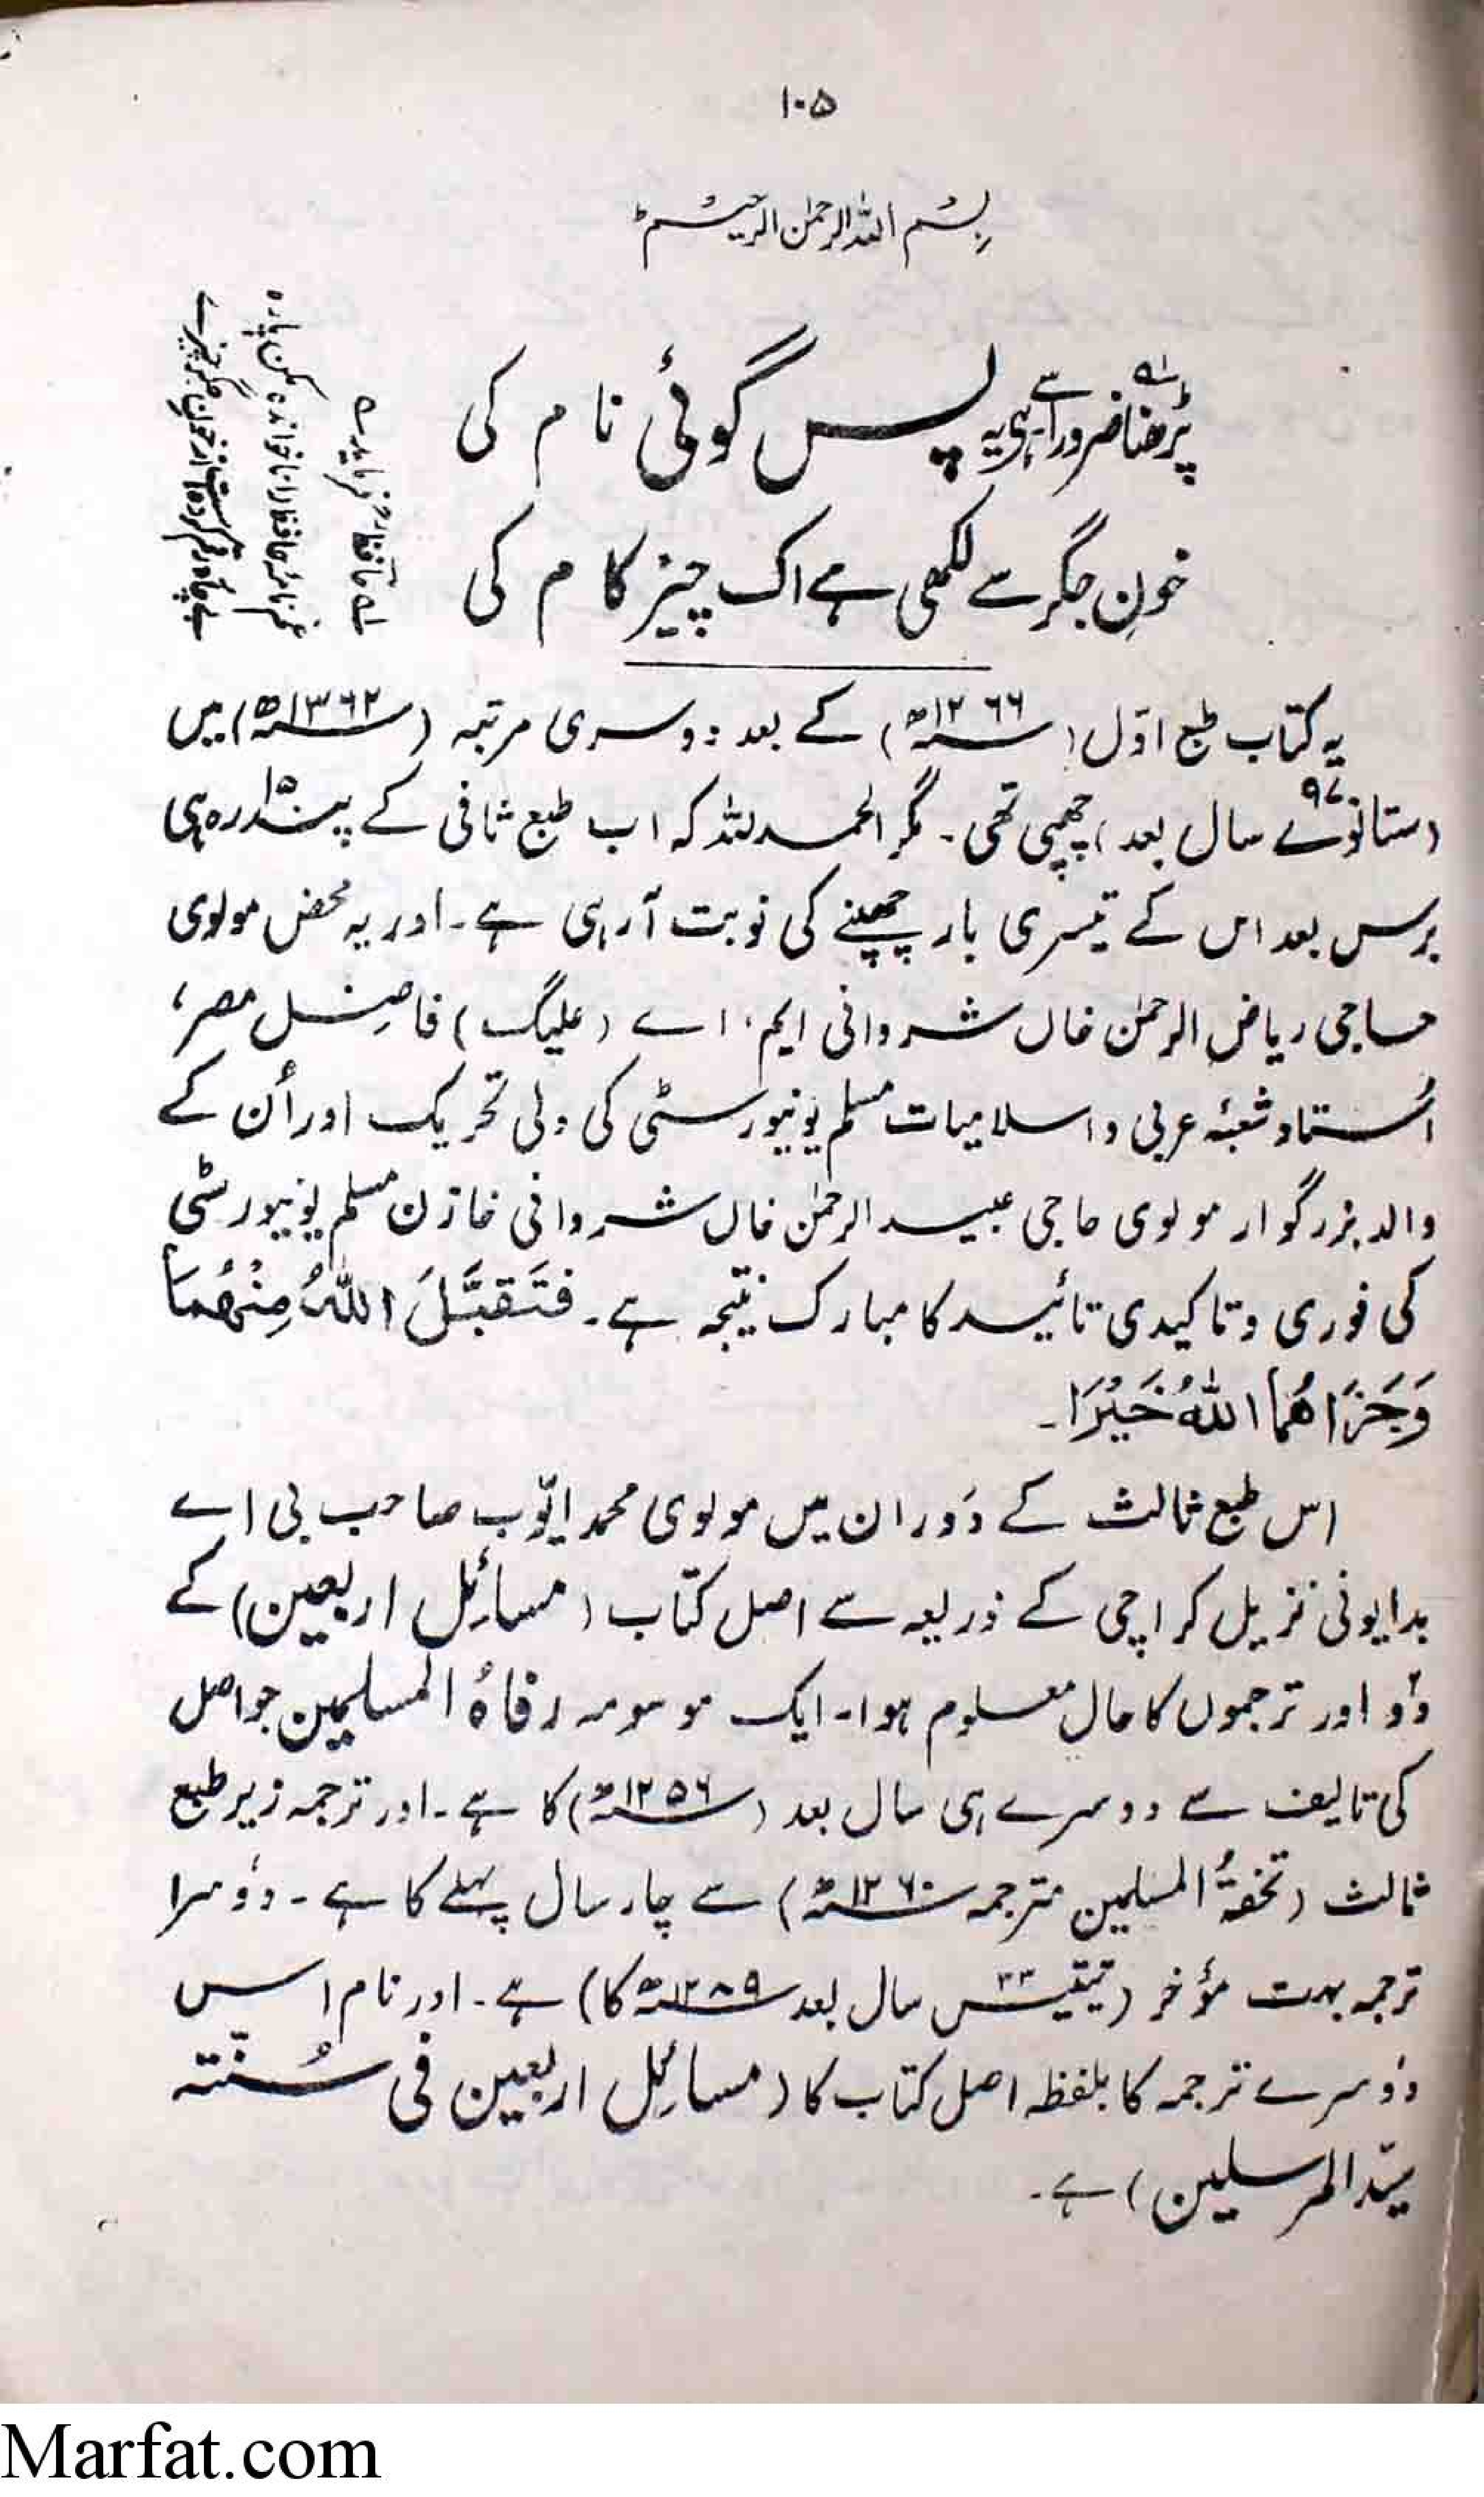 ۱۰۵
بِسْمِ اللہ الرحمٰن الرحیم
پڑھنا ضرور اسے یہ پس گوئی نام کی
خونِ جگر سے لکھی ہے اک چیز کام کی
یہ کتاب طبع اوّل (سنہ ۱۲۶۶ھ) کے بعد دوسری مرتبہ (سنہ ۱۳۶۲ھ) میں
(ستانوے ۹۷ سال بعد) چھپی تھی۔ مگر الحمد للہ کہ اب طبع ثانی کے پندرہ ۱۵ ہی
برس بعد اس کے تیسری بار چھپنے کی نوبت آ رہی ہے۔ اور یہ محض مولوی
حاجی ریاض الرحمٰن خاں شروانی ایم، اے (علیگ) فاضِل مصر،
اُستاد شعبۂ عربی و اسلامیات مسلم یونیورسٹی کی دلی تحریک اور اُن کے
والد بزرگوار مولوی حاجی عبید الرحمٰن خاں شروانی خازن مسلم یونیورسٹی
کی فوری و تاکیدی تائید کا مبارک نتیجہ ہے۔ فَتَقَبَّلَ اللہُ مِنْهُمَا
وَجَزَاهُمَا اللہُ خَيْرًا۔
اس طبع ثالث کے دَوران میں مولوی محمد ایّوب صاحب بی اے
بدایونی نزیل کراچی کے ذریعہ سے اصل کتاب (مسائِل اربعین) کے
دو اور ترجموں کا حال معلوم ہوا۔ ایک موسومہ رفاہُ المسلمین جو اصل
کی تالیف سے دوسرے ہی سال بعد (سنہ ۱۲۵۶ھ) کا ہے۔ اور ترجمہ زیر طبع
ثالث (تحفۃُ المسلمین مترجمہ سنہ ۱۲۶۰ھ) سے چار سال پہلے کا ہے۔ دُوسرا
ترجمہ بہت مؤخر (تینتیس ۳۳ سال بعد سنہ ۱۲۸۹ھ کا) ہے۔ اور نام اس
دُوسرے ترجمہ کا بلفظہ اصل کتاب کا (مسائِل اربعین فی سُنّۃ
سیّد المرسلین) ہے۔
Marfat.com